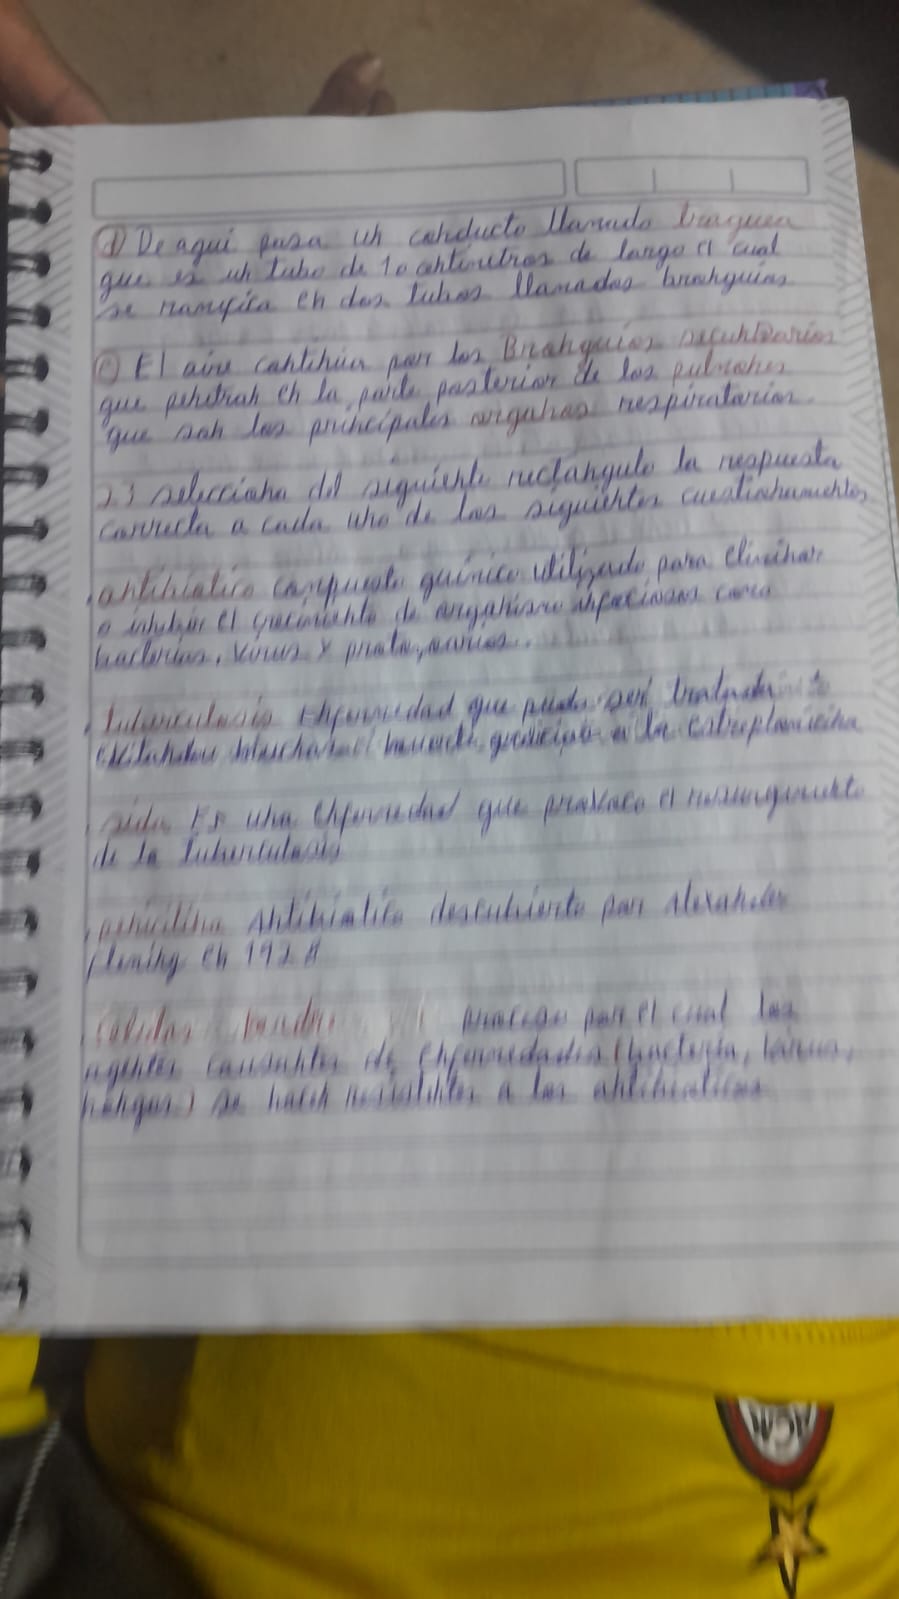 d) De aqui pasa un conducto llamado traquea
que es un tubo de 10 centimetros de largo el cual
se ramifica en dos tubos llamados bronquios
e) El aire continua por los Bronquios secundarios
que penetran en la parte posterior de los pulmones
que son los principales organos respiratorios.
2.) selecciona del siguiente rectangulo la respuesta
correcta a cada uno de los siguientes cuestionamientos
. antibiotico compuesto quimico utilizado para eliminar
o inhibir el crecimiento de organismo infecciosos como
bacterias, virus y protozoarios.
. tuberculosis Enfermedad que puede ser tratada
a la estreptomicina
. sida Es una enfermedad que provoco el resurgimiento
de la tuberculosis
. penicilina Antibiotico descubierto por Alexander
fleming en 1928
proceso por el cual los
agentes causantes de enfermedades (bacteria, virus,
hongos) se hacen resistentes a los antibioticos